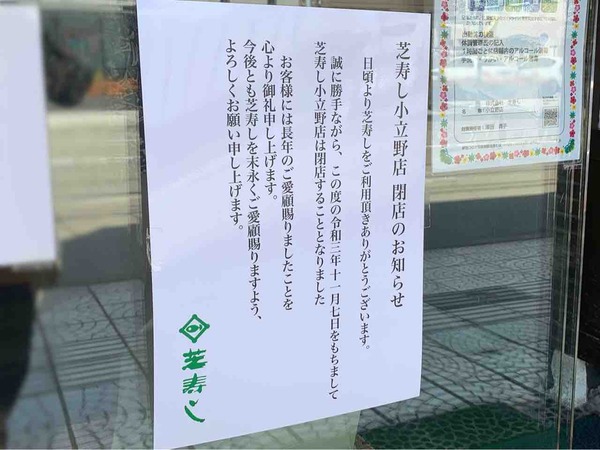 芝寿し小立野店 閉店のお知らせ
日頃より芝寿しをご利用頂きありがとうございます。
誠に勝手ながら、この度の令和三年十一月七日をもちまして
芝寿し小立野店は閉店することとなりました
お客様には長年のご愛顧賜りましたことを
心より御礼申し上げます。
今後とも芝寿しを末永くご愛顧賜りますよう、
よろしくお願い申し上げます。
芝寿し
体調管理表の記入